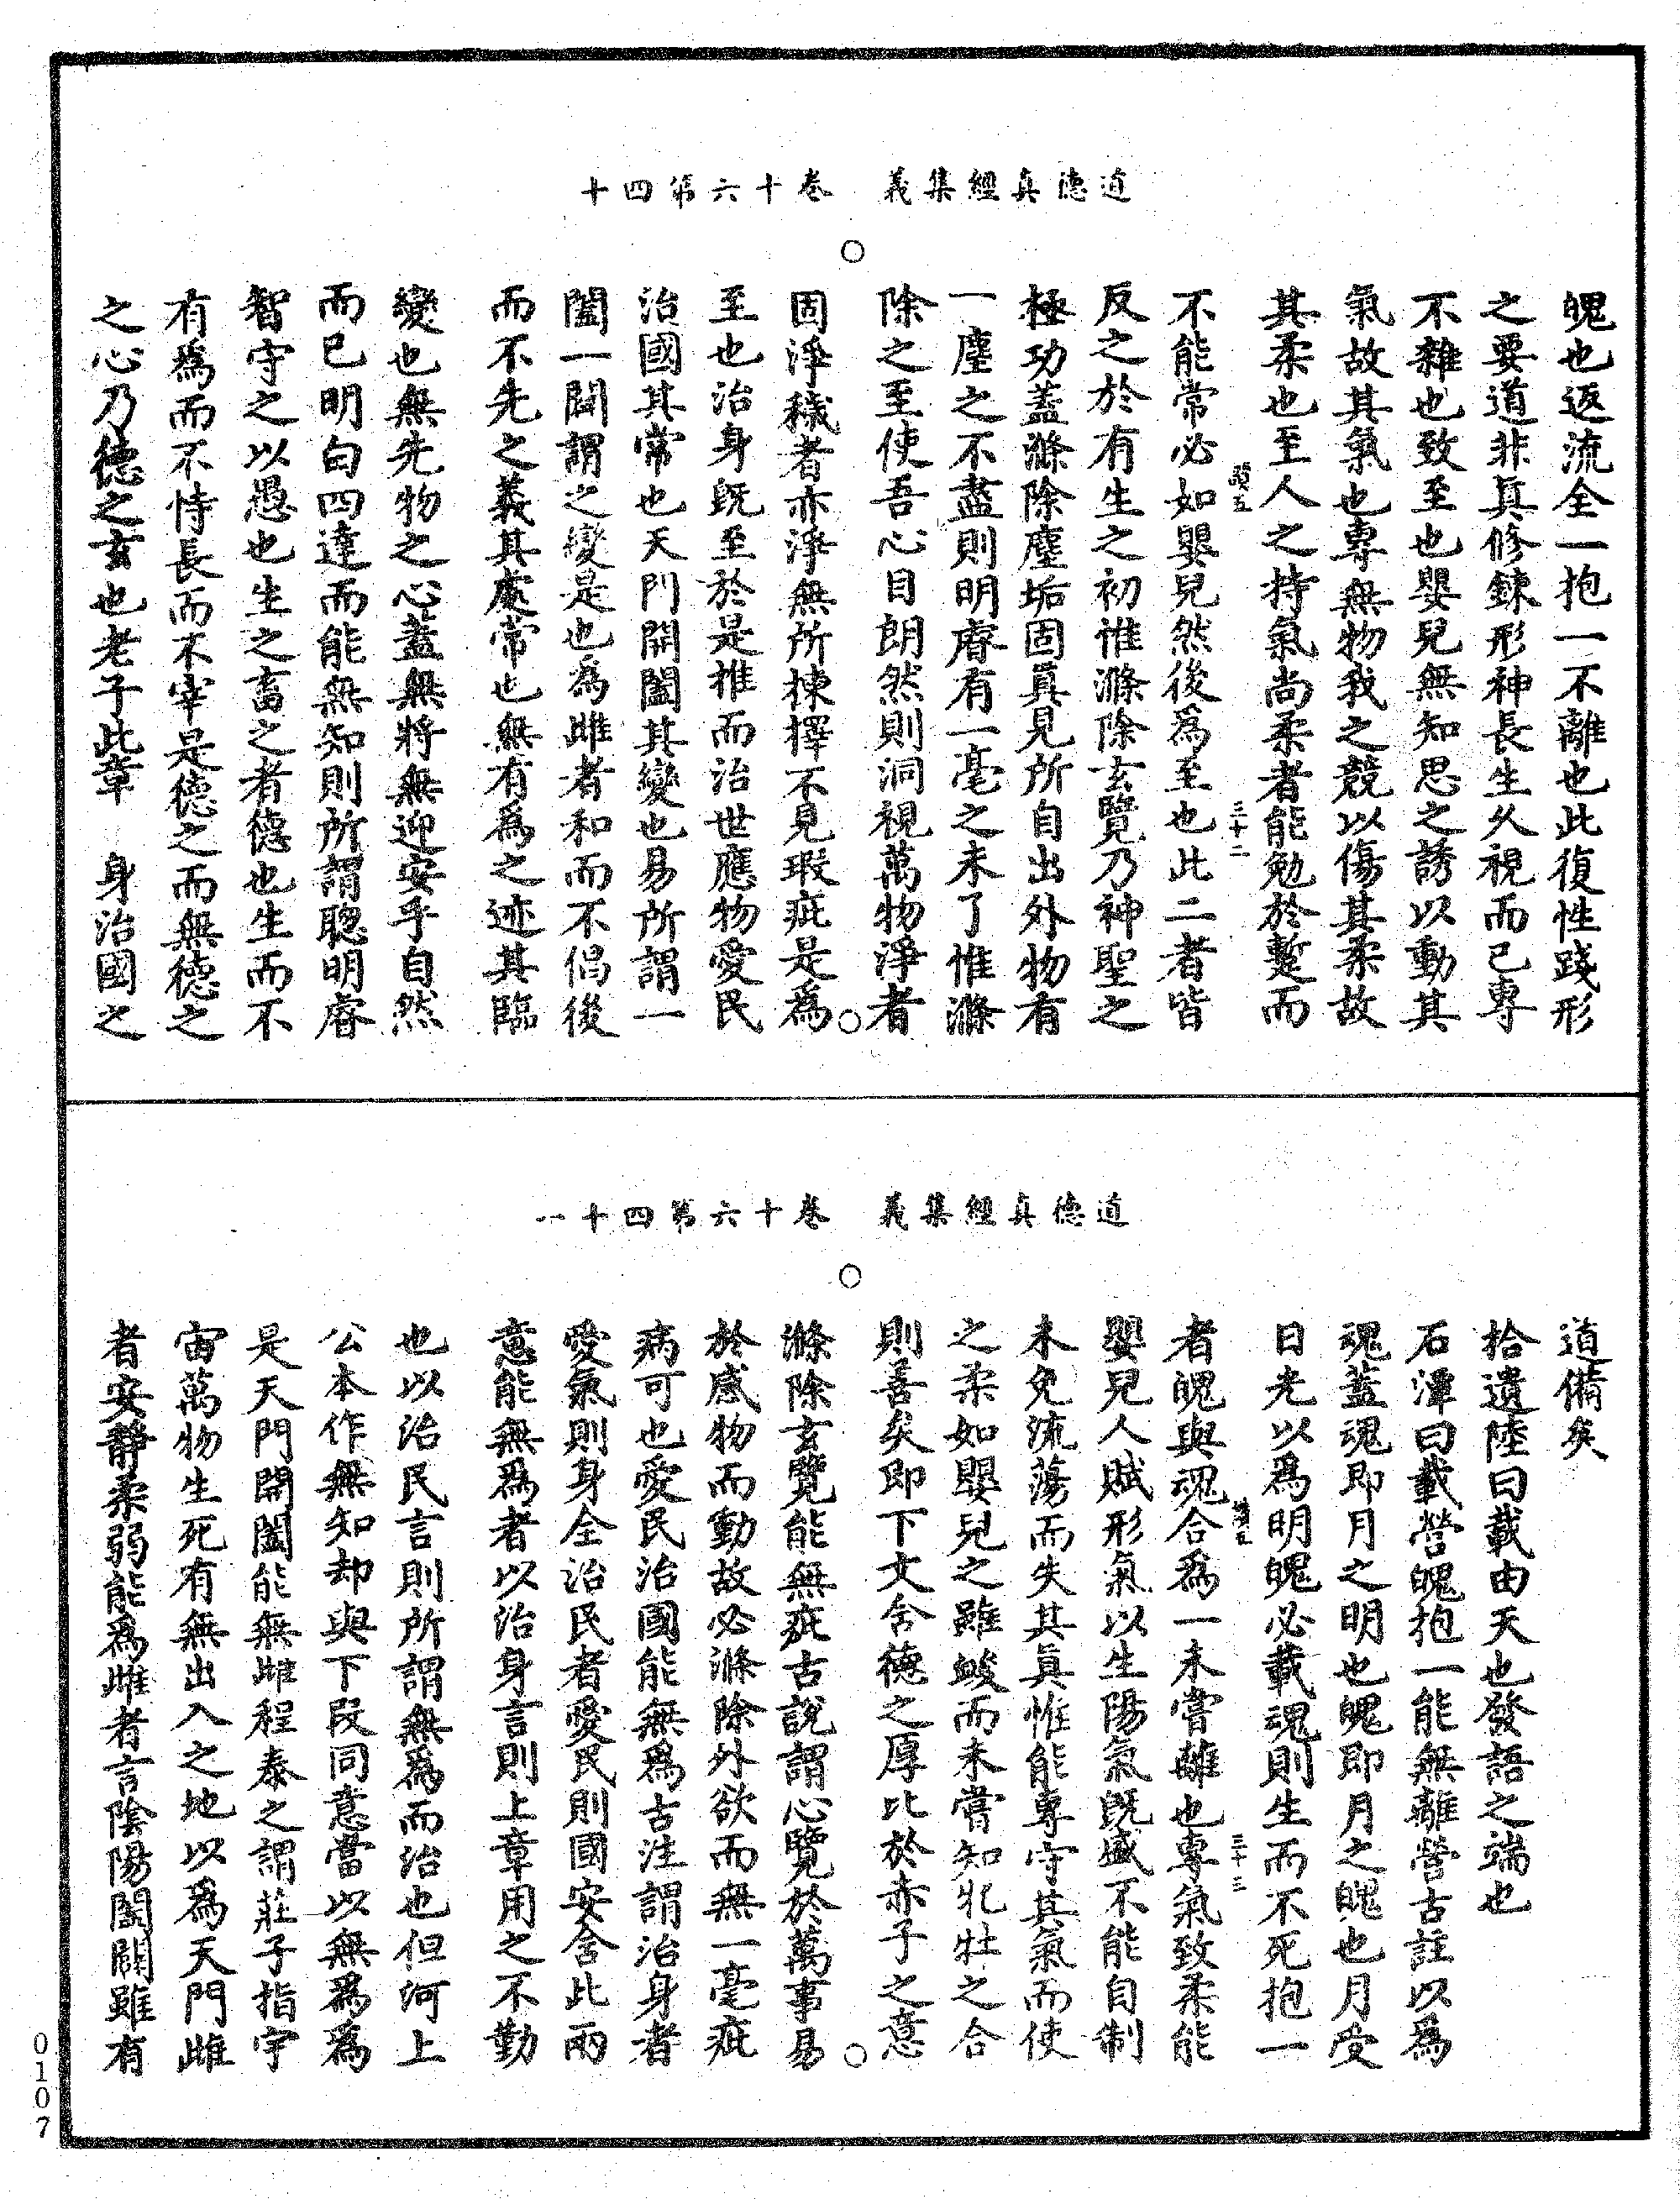 道德真經集義　卷十六第四十
魄也返流全一抱一不離也此復性踐形
之要道非真修鍊形神長生久視而已專
不雜也致至也嬰兒無知思之誘以動其
氣故其氣也專無物我之競以傷其柔故
其柔也至人之持氣尚柔者能勉於蹔而
三十二
不能常必如嬰兒然後爲至也此二者皆
反之於有生之初惟滌除玄覽乃神聖之
極功蓋滌除塵垢固真見所自出外物有
一塵之不盡則明睿有一毫之未了惟滌
除之至使吾心目朗然則洞視萬物淨者
固淨穢者亦淨無所揀擇不見瑕疵是爲
至也治身旣至於是推而治世應物愛民
治國其常也天門開闔其變也易所謂一
闔一闢謂之變是也為雌者和而不倡後
而不先之義其處常也無有爲之迹其臨
變也無先物之心蓋無將無迎安乎自然
而已明白四達而能無知則所謂聰明睿
智守之以愚也生之畜之者德也生而不
有爲而不恃長而不宰是德之而無德之
之心乃德之玄也老子此章　身治國之
道德真經集義　卷十六第四十一
道備矣
拾遺陸曰載由天也發語之端也
石潭曰載營魄抱一能無離營古註以為
魂蓋魂即月之明也魄即月之魄也月受
日光以爲明魄必載魂則生而不死抱一
三十三
者魄與魂合爲一未嘗離也專氣致柔能
嬰兒人賦形氣以生陽氣旣盛不能自制
未免流蕩而失其真惟能專守其氣而使
之柔如嬰兒之雖㕙而未嘗知牝牡之合
則善矣即下文含德之厚比於赤子之意
滌除玄覽能無疵古說謂心覽於萬事易
於感物而動故必滌除外欲而無一毫疵
病可也愛民治國能無爲古注謂治身者
愛氣則身全治民者愛民則國安含此兩
意能無爲者以治身言則上章用之不勤
也以治民言則所謂無爲而治也但河上
公本作無知却與下段同意當以無爲爲
是天門開闔能無雌程泰之謂莊子指宇
宙萬物生死有無出入之地以爲天門雌
者安靜柔弱能爲雌者言陰陽闔闢雖有
0107